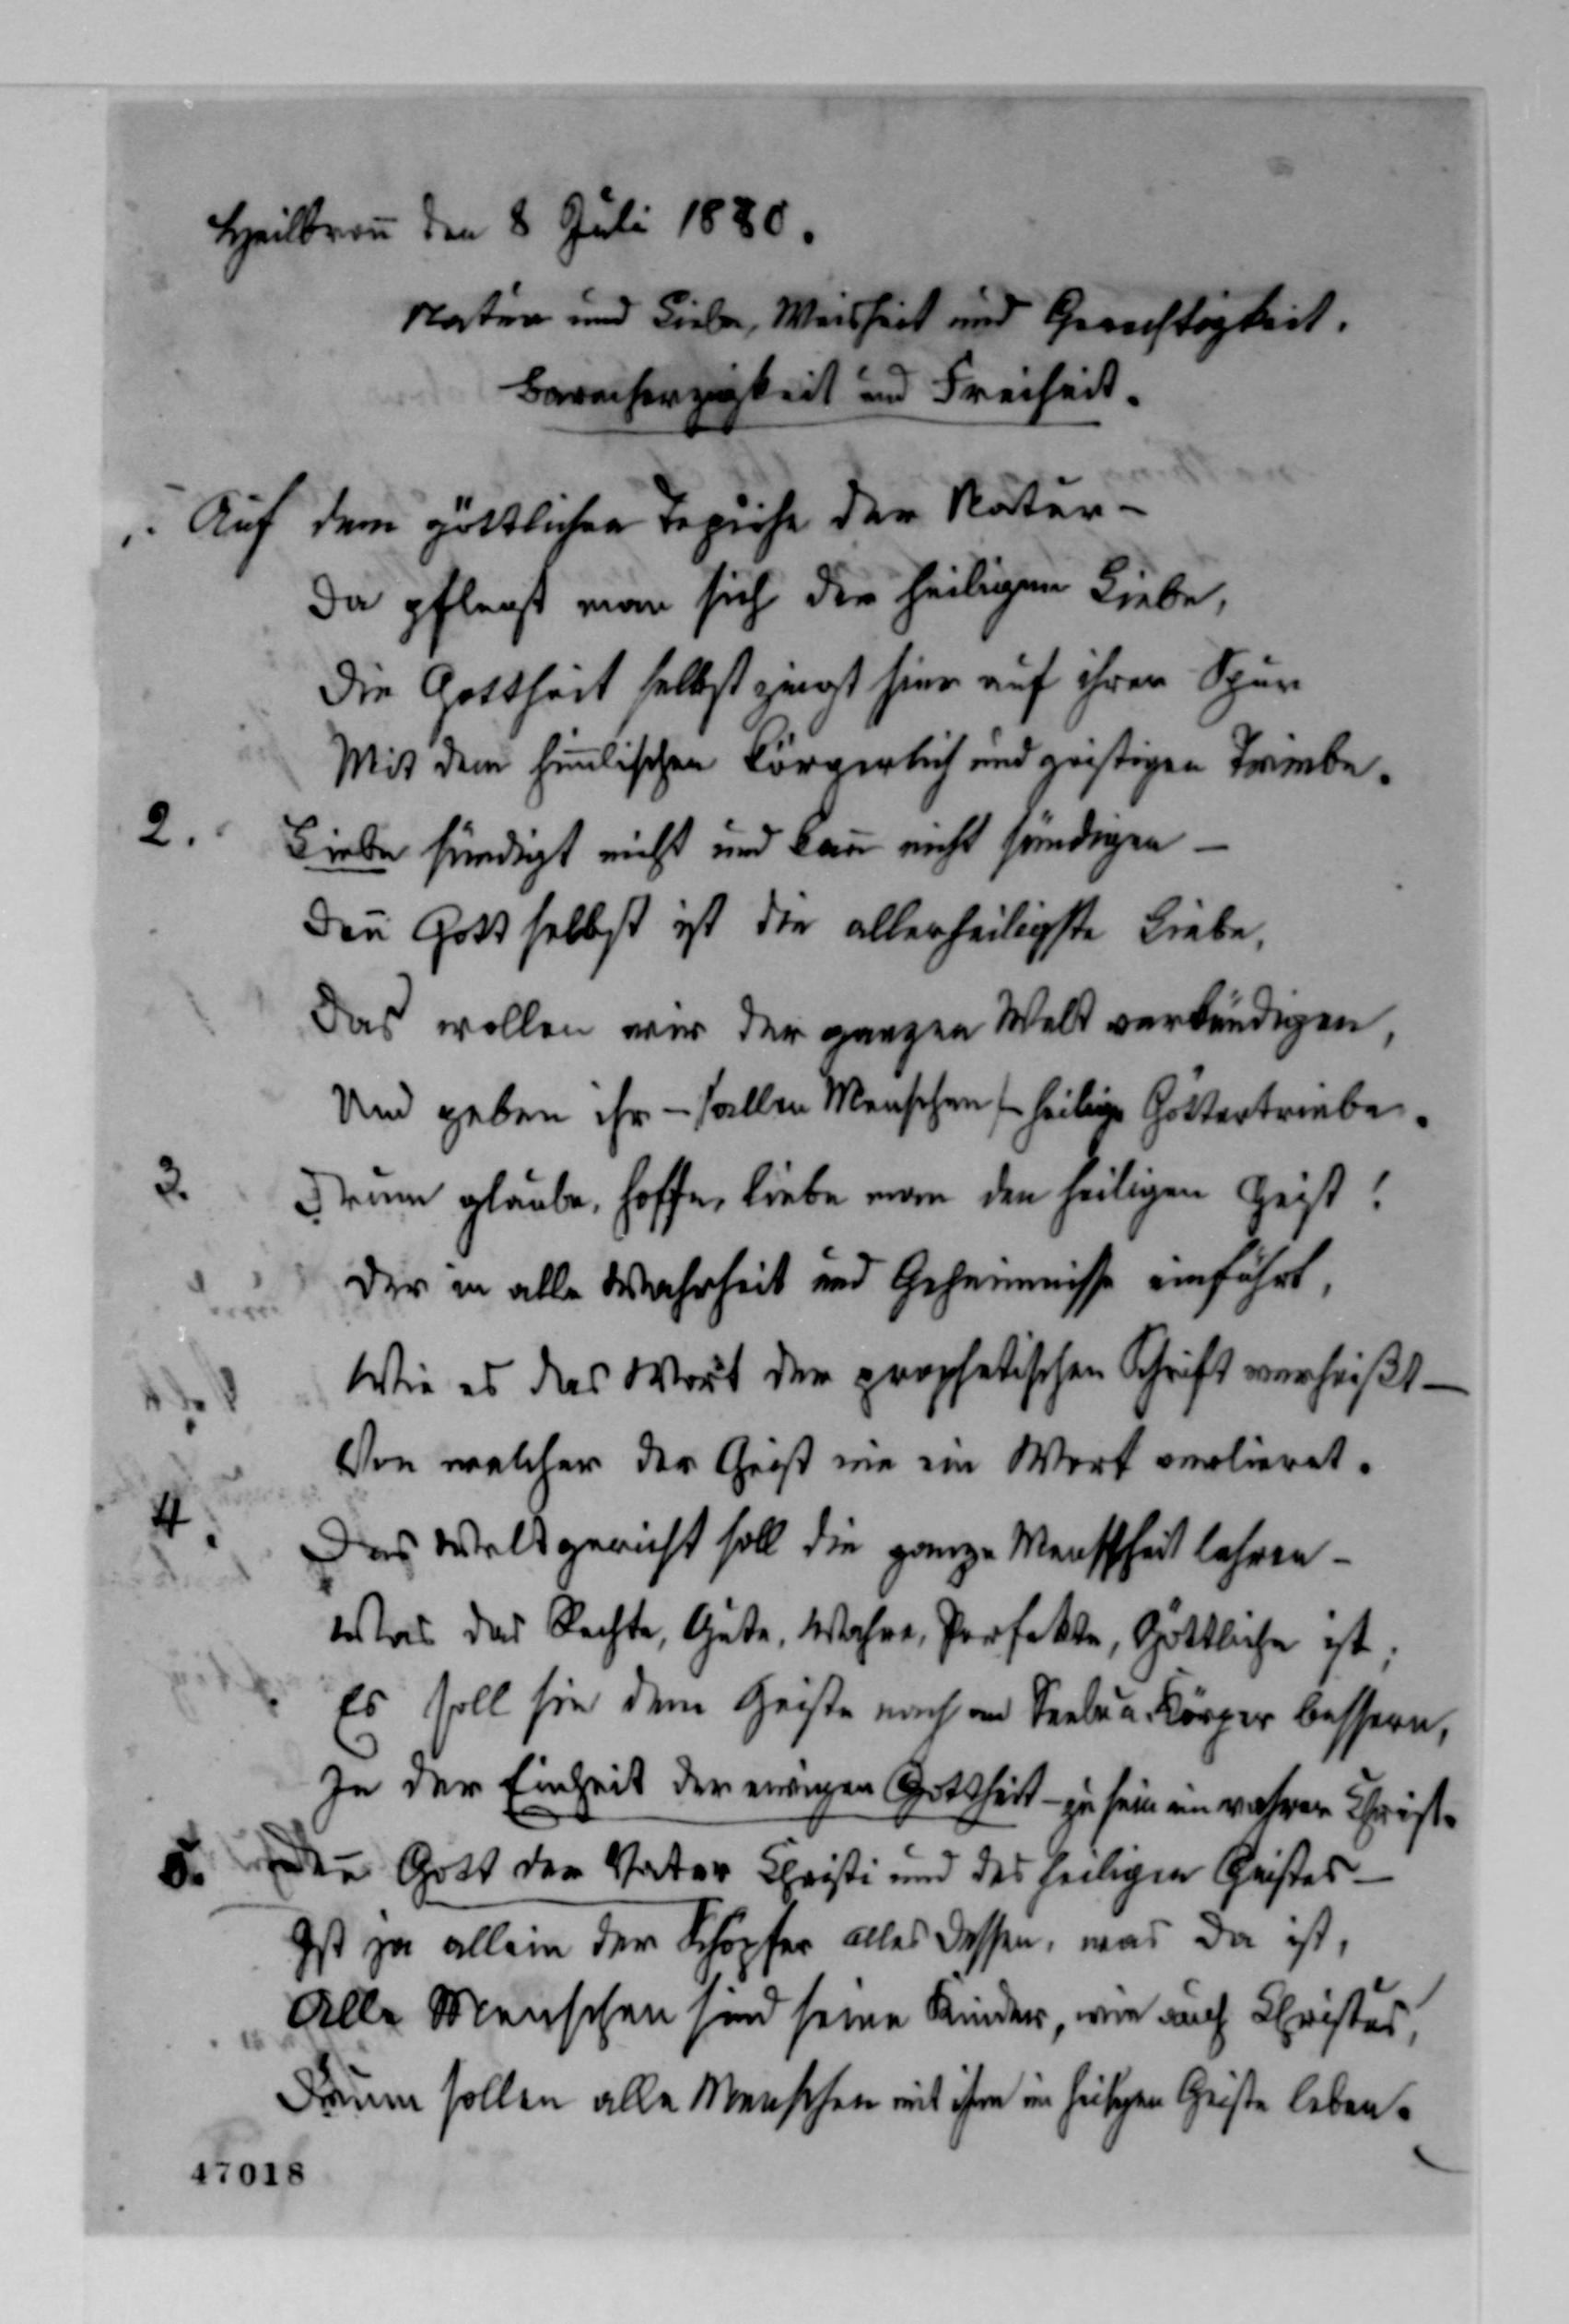 Heilbron̄ den 8 Juli 1880.
Natur und Liebe, Weisheit und Gerechtigkeit.
Barmherzigkeit und Freiheit.
1. Auf dem göttlichen Tepiche der Natur –
Da pflegt man sich der heiligen Liebe,
Die Gottheit selbst zeugt hier auf ihrer Spur
Mit dem him̄lischen körperlich und geistigen Triebe.
2. Liebe sündigt nicht und kan̄ nicht sündigen –
Den̄ Gott selbst ist die allerheiligste Liebe,
Das wollen wir der ganzen Welt verkündigen,
Und geben ihr – /allen Menschen/ – heilige Göttertriebe.
3. Drum glaube, hoffe, liebe man den heiligen Geist!
Der in alle Wahrheit und Geheimnisse einführt,
Wie es das Wort der prophetischen Schrift verheißt –
Von welcher der Geist nie ein Wort verlieret.
4. Das Weltgericht soll die ganze Menschheit lehren –
Was das Rechte, Gute, Wahre, Perfekte, Göttliche ist;
Es soll sie dem Geiste nach an Seele u. Körper bessern,
In der Einheit der ewigen Gottheit – zu sein ein wahrer Christ.
5. Den̄ Gott der Vater Christi und des heiligen Geistes –
Ist ja allein der Schöpfer alles dessen, was da ist,
Alle Menschen sind seine Kinder, wie auch Christus,
Drum sollen alle Menschen mit ihm im heiligen Geiste leben.
47018